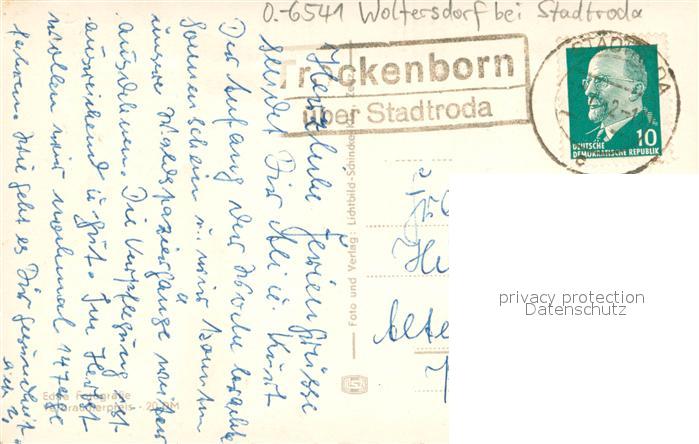 O.-6541 Woltersdorf bei Stadtroda
Trockenborn
über Stadtroda
STADTRODA
10
DEUTSCHE
DEMOKRATISCHE REPUBLIK
Herzliche Feriengrüsse
sendet Dir
Der Anfang der Woche brachte
Sonnenschein u. wir konnten
unsre Waldspaziergänge weiter
ausdehnen. Die Verpflegung ist
ausreichend u. gut. Im Herbst
wollen wir nochmal 14 Tage
fahren. Wie geht es Dir gesundheit-
lich?
Foto und Verlag: Lichtbild-Schincke
Echte Fotografie
Verbraucherpreis -.20 DM
privacy protection
Datenschutz